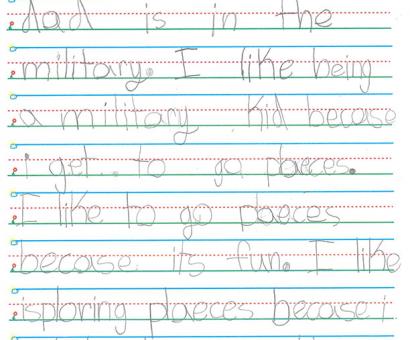 dad is in the
military. I like being
a military kid becase
i get to go plaeces.
I like to go plaeces
becaise its fun. I like
isploring plaeces becaise i